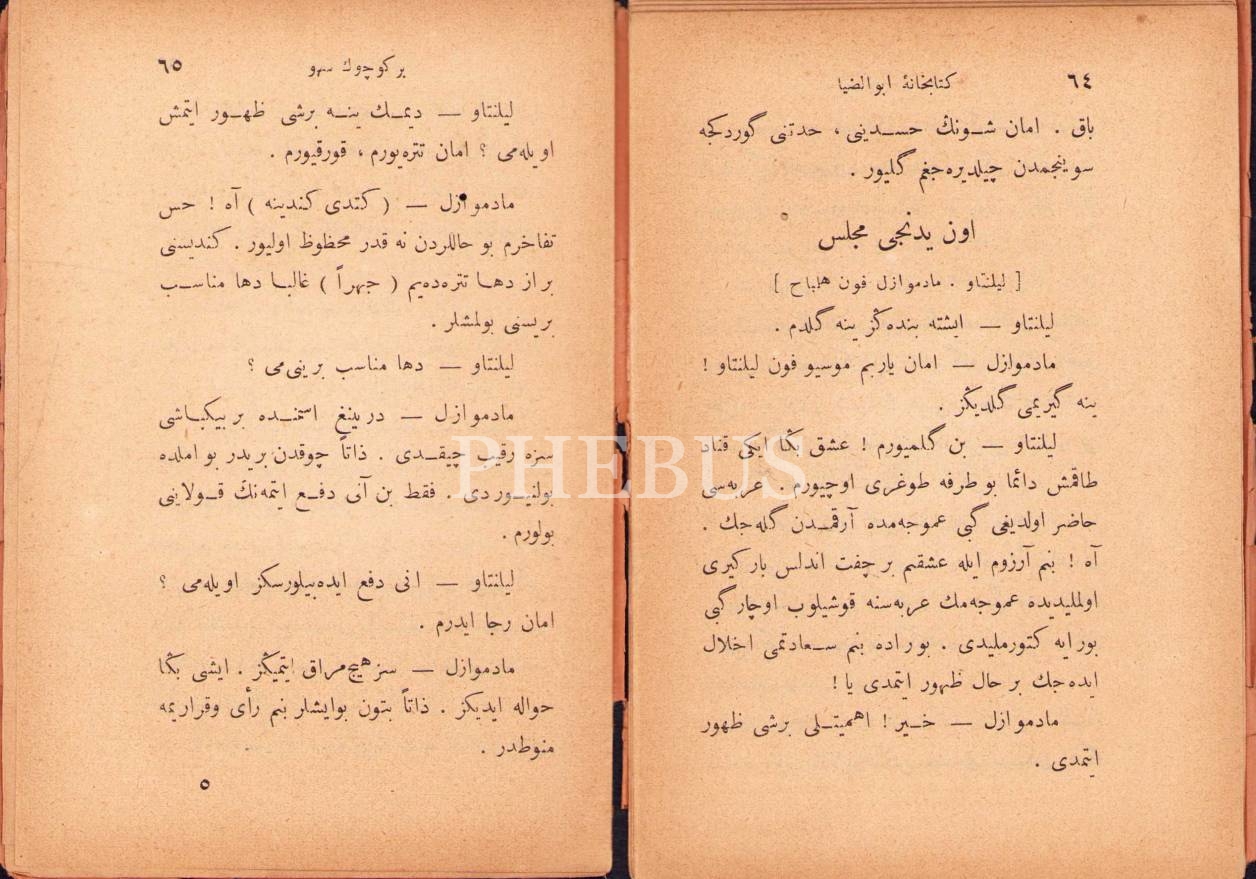 ٦٤
كتابخانهٔ ابوالضيا
باق . امان شـونك حسـدينى ، حدتنى گوردكجه
سوينجمدن چيلديره‌جغم گليور .
اون يدنجى مجلس
[ ليلنتاو . مادموازل فون هلباح ]
ليلنتاو — ايشته بنده‌ڭز ينه گلدم .
مادموازل — امان ياربم موسيو فون ليلنتاو !
ينه گيريمى گلديڭز .
ليلنتاو — بن گلميورم ! عشق بڭا ايكى قناد
طاقمش دائما بو طرفه طوغرى اوچيورم . عربه‌سى
حاضر اولديغى گبى عموجه‌مده آرقمـدن گله‌جك .
آه ! بنم آرزوم ايله عشقم بر چفت اندلس بارگيرى
اولمليديده عموجه‌مك عربه‌سنه قوشيلوب اوچار گبى
بورايه كتورمليدى . بوراده بنم سـعادتمى اخلال
ايده‌جك بر حال ظهور ايتمدى يا !
مادموازل — خـير ! اهميتـلى برشى ظهور
ايتمدى .
٦٥
بر كوچوك سهو
ليلنتاو — ديمـك ينـه برشى ظهـور ايتمش
اويله‌مى ؟ امان تتره‌يورم ، قورقيورم .
مادموازل — ( كندى كندينه ) آه ! حس
تفاخرم بو حاللردن نه قدر محظوظ اوليور . كنديسنى
براز دهـا تتره‌ده‌يم ( جهراً ) غالبـا دها مناسـب
بريسنى بولمشلر .
ليلنتاو — دها مناسب برينى‌مى ؟
مادموازل — درينغ اسمنـده بر بيكباشى
سزه رقيب چيقـدى . ذاتاً چوقدن بريدر بو املده
بولنيـوردى . فقط بن آنى دفـع ايتمه‌نك قـولاينى
بولورم .
ليلنتاو — انى دفع ايده‌بيلورسكز اويله‌مى ؟
امان رجا ايدرم .
مادموازل — سز هيچ مراق ايتميڭز . ايشى بڭا
حواله ايديكز . ذاتاً بتون بوايشلر بنم رأى وقراريمه
منوطدر .
٥
PHEBUS